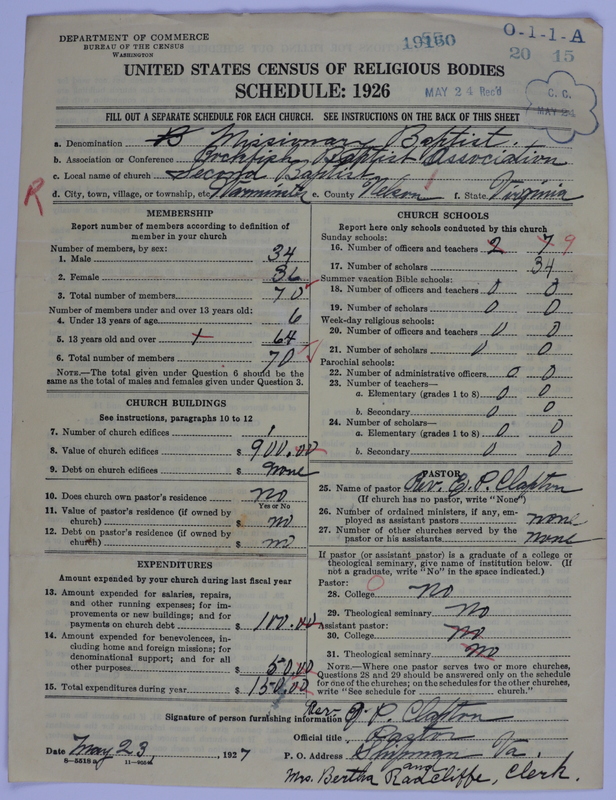 DEPARTMENT OF COMMERCE
BUREAU OF THE CENSUS
WASHINGTON
O-1-1-A
20 15
UNITED STATES CENSUS OF RELIGIOUS BODIES
SCHEDULE: 1926
MAY 24 Rec'd
C. C.
MAY 24
FILL OUT A SEPARATE SCHEDULE FOR EACH CHURCH. SEE INSTRUCTIONS ON THE BACK OF THIS SHEET
a. Denomination Missionary Baptist.
b. Association or Conference Rockfish Baptist Association
c. Local name of church Second Baptist
R
d. City, town, village, or township, etc. Warminster e. County Nelson f. State Virginia
MEMBERSHIP
Report number of members according to definition of
member in your church
Number of members, by sex:
1. Male 34
2. Female 36
3. Total number of members 70
Number of members under and over 13 years old:
4. Under 13 years of age 6
5. 13 years old and over 64
6. Total number of members 70
NOTE.—The total given under Question 6 should be the
same as the total of males and females given under Question 3.
CHURCH BUILDINGS
See instructions, paragraphs 10 to 12
7. Number of church edifices 1
8. Value of church edifices $ 900.00
9. Debt on church edifices $ none
10. Does church own pastor's residence no
Yes or No
11. Value of pastor's residence (if owned by
church) $ no
12. Debt on pastor's residence (if owned by
church) $ no
EXPENDITURES
Amount expended by your church during last fiscal year
13. Amount expended for salaries, repairs,
and other running expenses; for im-
provements or new buildings; and for
payments on church debt $ 100.00
14. Amount expended for benevolences, in-
cluding home and foreign missions; for
denominational support; and for all
other purposes $ 50.00
15. Total expenditures during year $ 150.00
CHURCH SCHOOLS
Report here only schools conducted by this church
Sunday schools:
16. Number of officers and teachers 2 7 9
17. Number of scholars 34
Summer vacation Bible schools:
18. Number of officers and teachers 0 0
19. Number of scholars 0 0
Week-day religious schools:
20. Number of officers and teachers 0 0
21. Number of scholars 0 0
Parochial schools:
22. Number of administrative officers 0 0
23. Number of teachers—
a. Elementary (grades 1 to 8) 0 0
b. Secondary 0 0
24. Number of scholars—
a. Elementary (grades 1 to 8) 0 0
b. Secondary 0 0
PASTOR
25. Name of pastor Rev. E. P. Clapton
(If church has no pastor, write "None")
26. Number of ordained ministers, if any, em-
ployed as assistant pastors none
27. Number of other churches served by the
pastor or his assistants none
If pastor (or assistant pastor) is a graduate of a college or
theological seminary, give name of institution below. (If
not a graduate, write "No" in the space indicated.)
Pastor:
28. College No
29. Theological seminary No
Assistant pastor:
30. College No
31. Theological seminary No
NOTE.—Where one pastor serves two or more churches,
Questions 28 and 29 should be answered only on the schedule
for one of the churches; on the schedules for the other churches,
write "See schedule for church."
Signature of person furnishing information Rev. E. P. Clapton
Official title Pastor
Date May 23, 1927 P. O. Address Shipman Va.
8-5518 a 11-9054
and
Mrs. Bertha Radcliffe, Clerk.